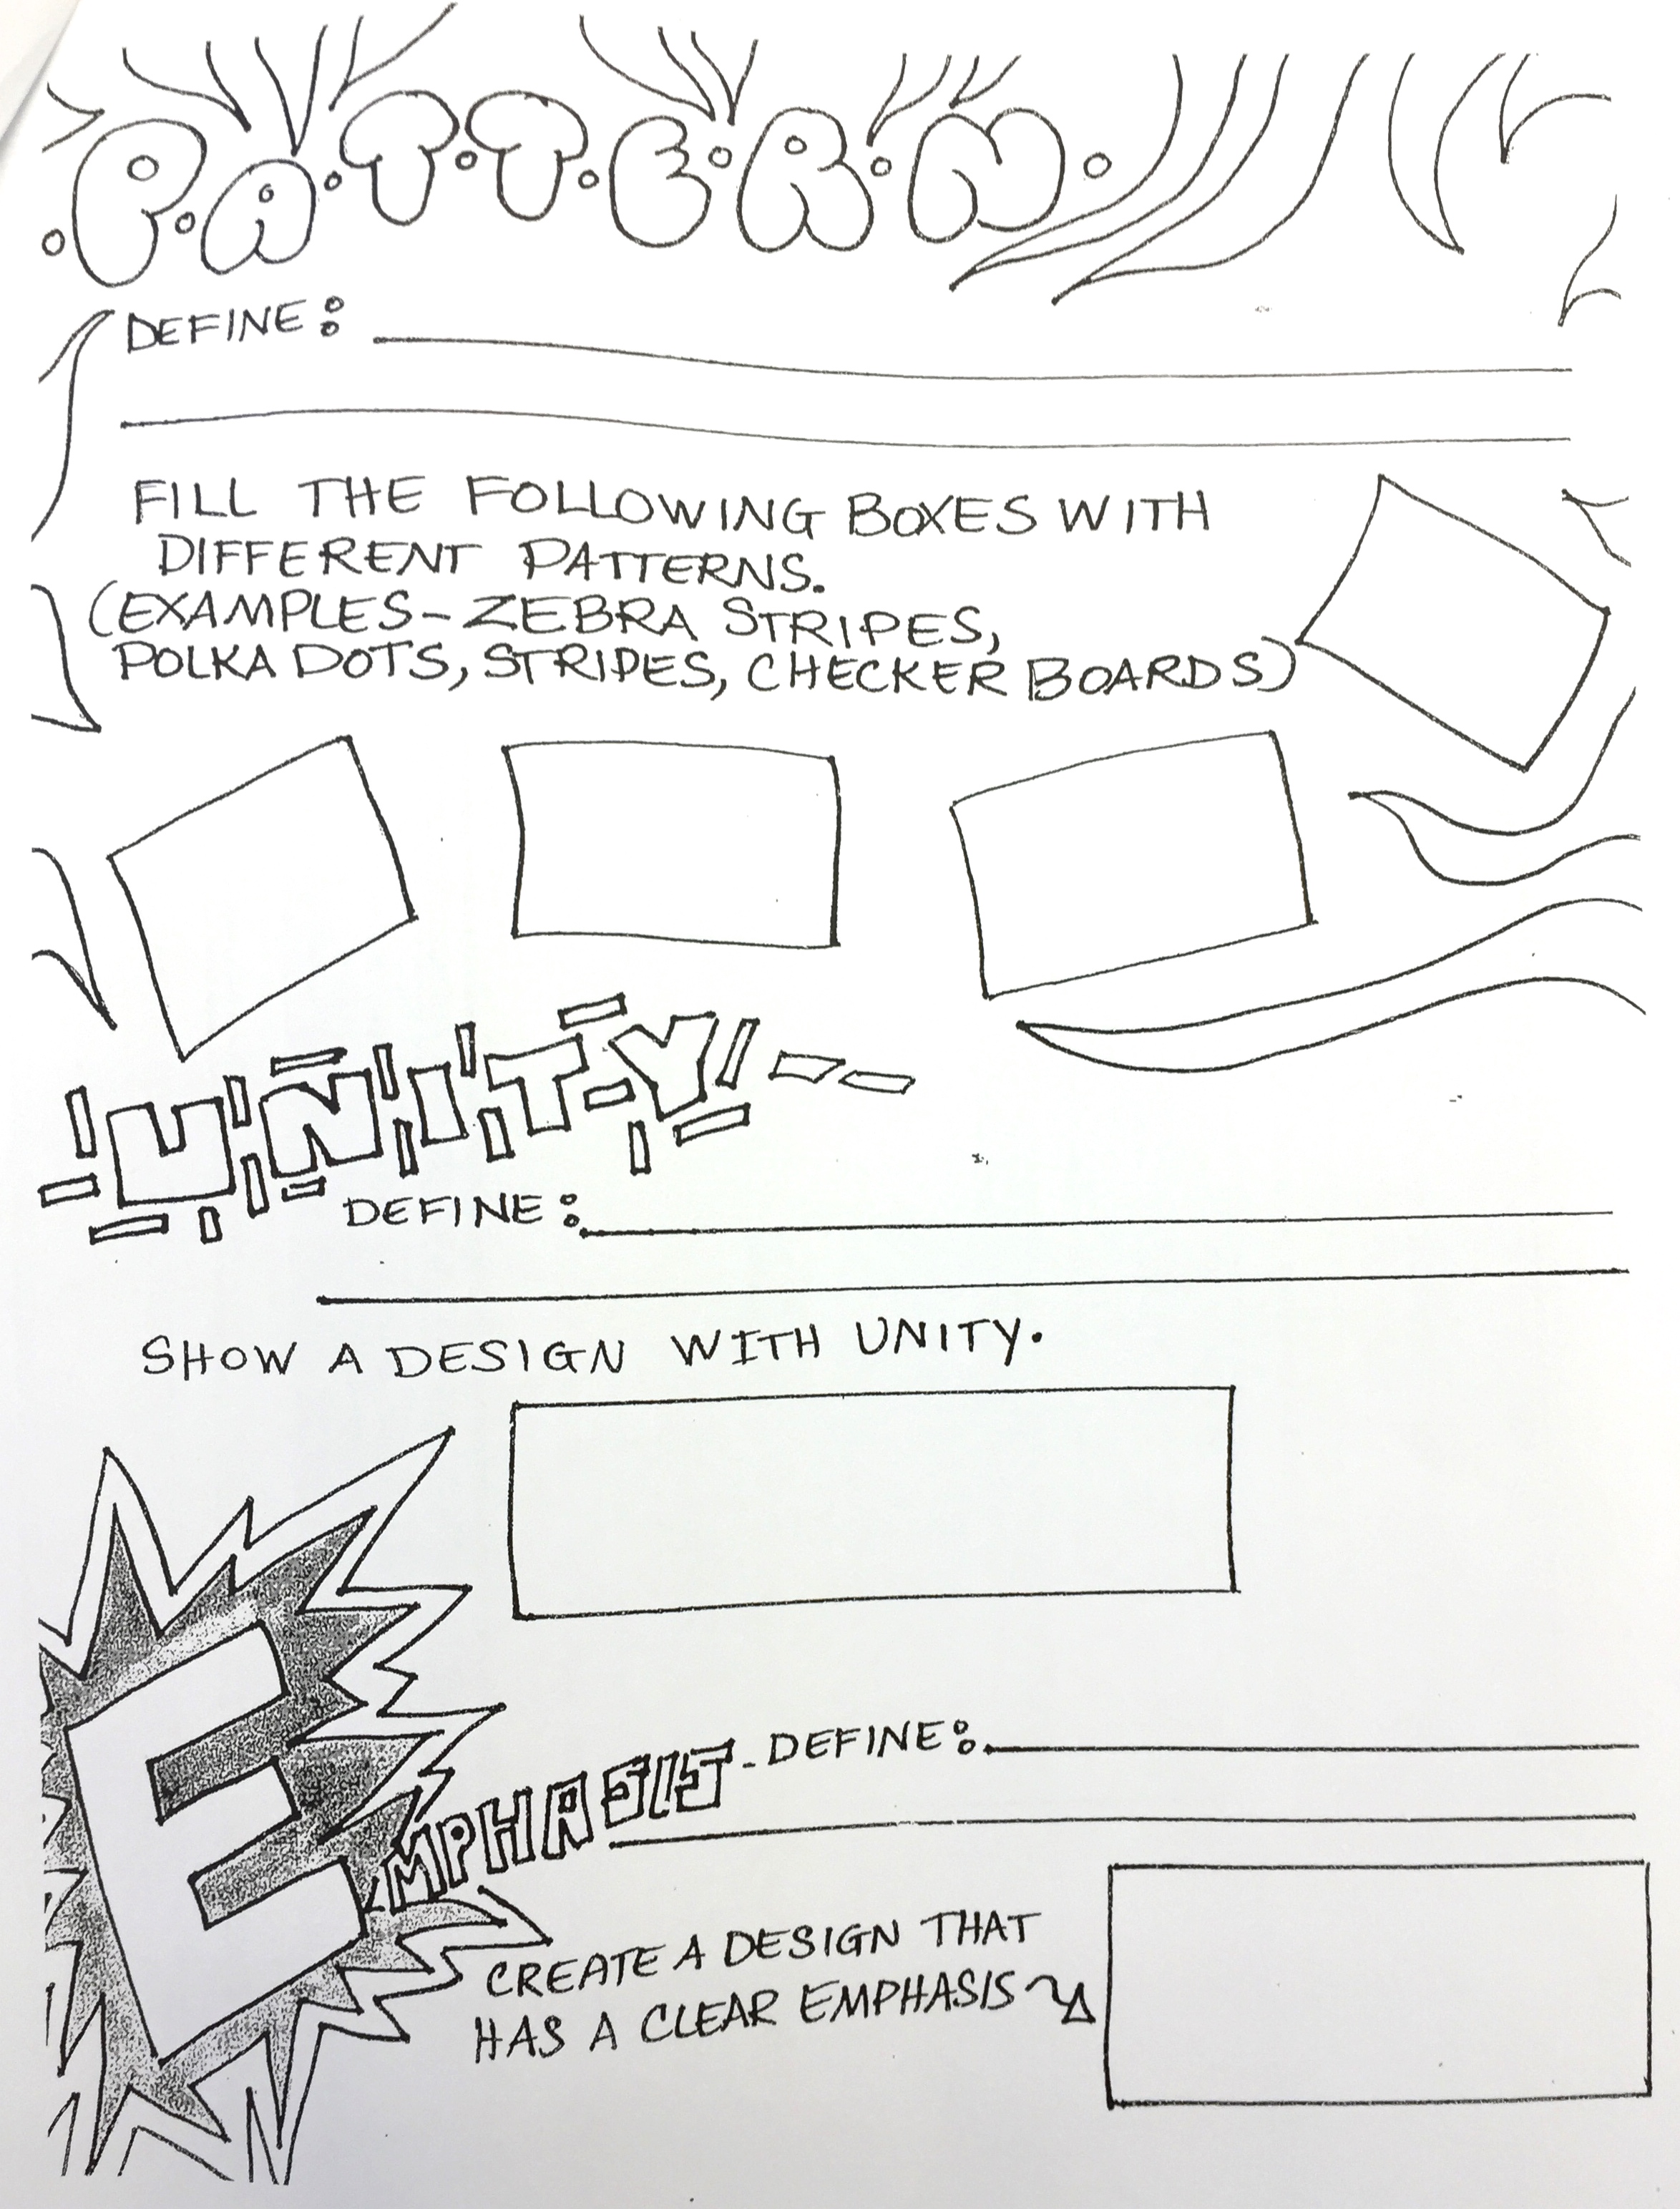 PATTERN
DEFINE:
FILL THE FOLLOWING BOXES WITH
DIFFERENT PATTERNS.
(EXAMPLES-ZEBRA STRIPES,
POLKA DOTS, STRIPES, CHECKER BOARDS)
UNITY
DEFINE:
SHOW A DESIGN WITH UNITY.
EMPHASIS - DEFINE:
CREATE A DESIGN THAT
HAS A CLEAR EMPHASIS